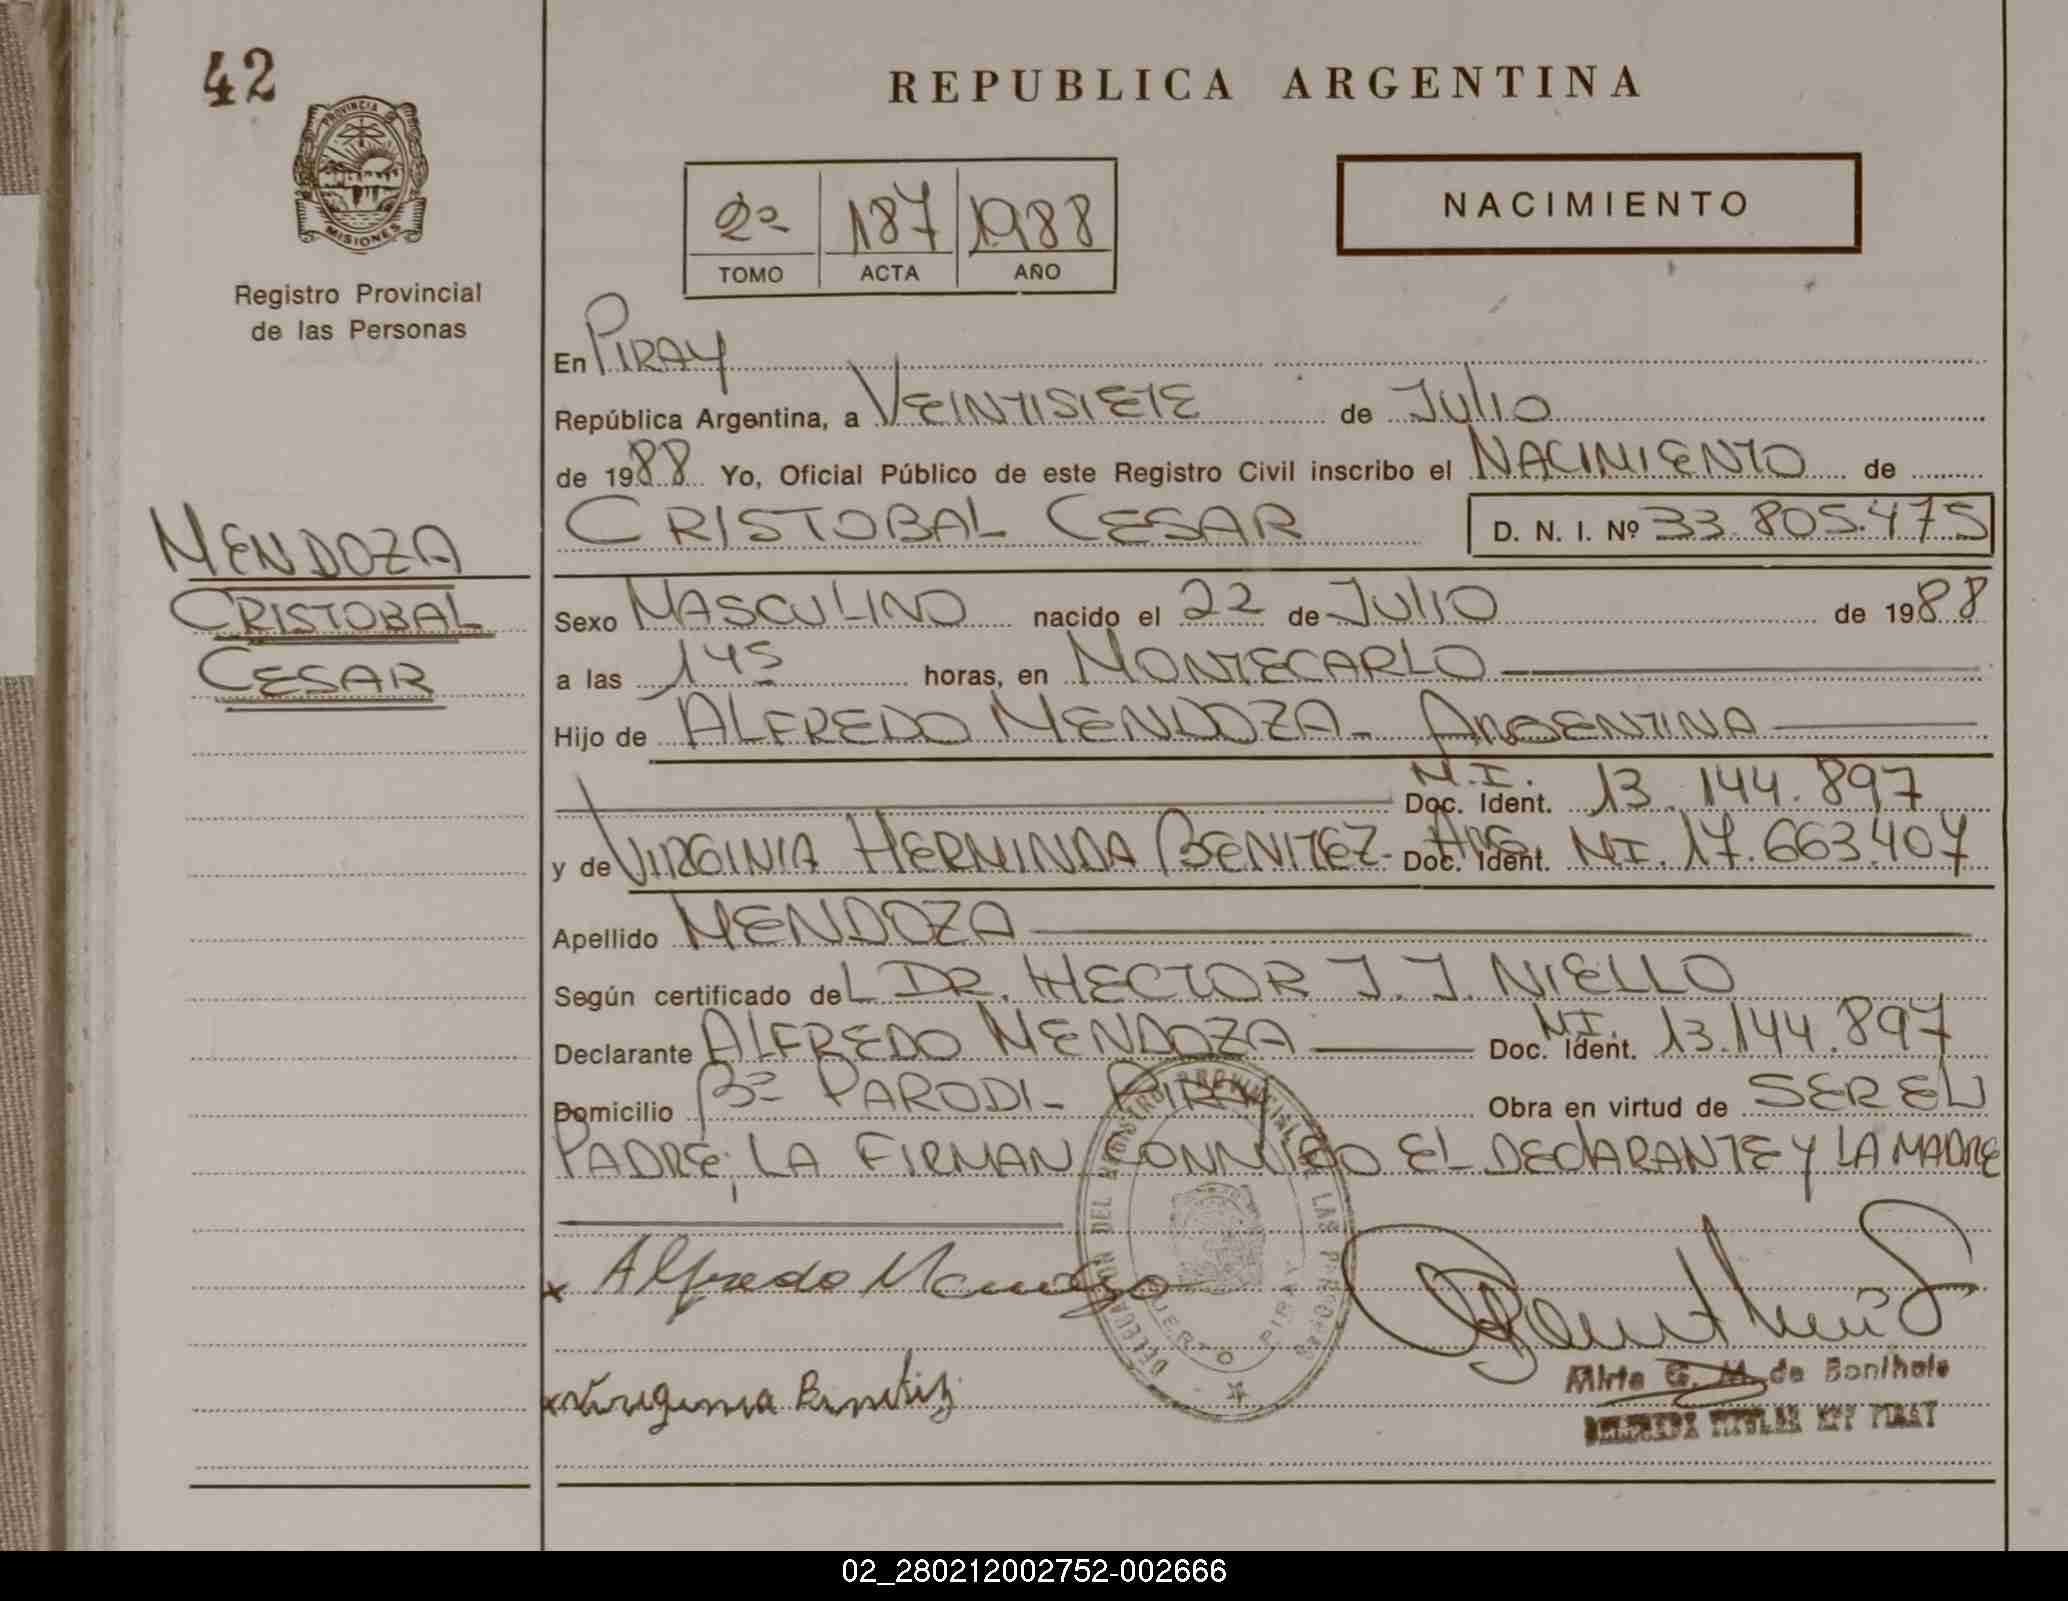 42
PROVINCIA DE
MISIONES
Registro Provincial
de las Personas
MENDOZA
CRISTOBAL
CESAR
REPUBLICA ARGENTINA
2º 187 1988
TOMO ACTA AÑO
NACIMIENTO
En PIRAY
República Argentina, a VEINTISIETE de JULIO
de 1988 Yo, Oficial Público de este Registro Civil inscribo el NACIMIENTO de
CRISTOBAL CESAR D. N. I. Nº 33.805.475
Sexo MASCULINO nacido el 22 de JULIO de 1988
a las 14 5 horas, en MONTECARLO
Hijo de ALFREDO MENDOZA - ARGENTINA
M.I.
Doc. Ident. 13.144.897
y de VIRGINIA HERMINDA BENITEZ - Arg. Doc. Ident. MI. 17.663.407
Apellido MENDOZA
Según certificado deL DR. HECTOR J. J. NIELLO
Declarante ALFREDO MENDOZA Doc. Ident. MI. 13.144.897
Domicilio Bº PARODI - PIRAY Obra en virtud de SER EL
PADRE, LA FIRMAN CONMIGO EL DECLARANTE Y LA MADRE
x Alfredo Mendoza
x Virginia Benitez
DELEGACION DEL REGISTRO PROVINCIAL DE LAS PERSONAS
PUERTO PIRAY
Mirta G. M. de Bonthole
DELEGADA TITULAR PTO PIRAY
02_280212002752-002666